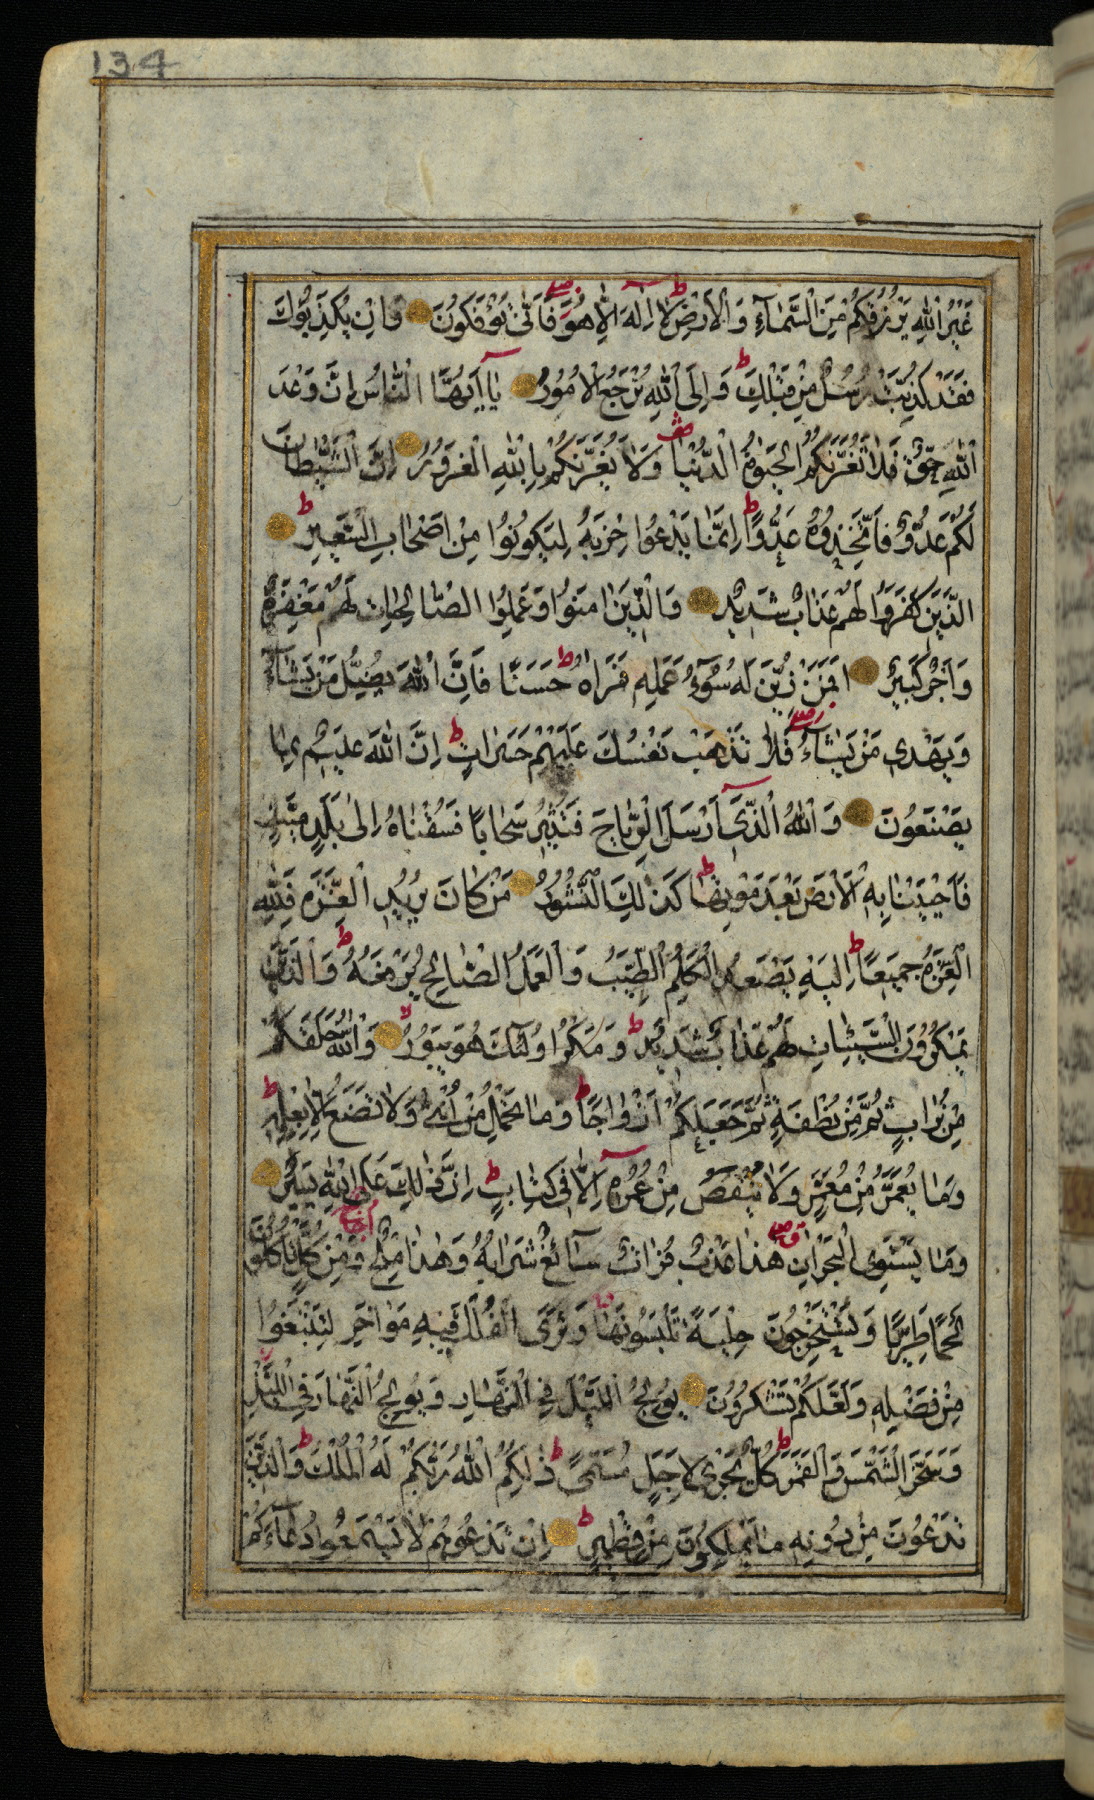 134
غَيْرُ اللّٰهِ يَرْزُقُكُمْ مِنَ السَّمَاءِ وَالْاَرْضِ لَا اِلٰهَ اِلَّا هُوَ فَاَنّٰى تُؤْفَكُونَ وَاِنْ يُكَذِّبُوكَ
فَقَدْ كُذِّبَتْ رُسُلٌ مِنْ قَبْلِكَ وَاِلَى اللّٰهِ تُرْجَعُ الْاُمُورُ يَا اَيُّهَا النَّاسُ اِنَّ وَعْدَ
اللّٰهِ حَقٌّ فَلَا تَغُرَّنَّكُمُ الْحَيٰوةُ الدُّنْيَا وَلَا يَغُرَّنَّكُمْ بِاللّٰهِ الْغَرُورُ اِنَّ الشَّيْطَانَ
لَكُمْ عَدُوٌّ فَاتَّخِذُوهُ عَدُوًّا اِنَّمَا يَدْعُوا حِزْبَهُ لِيَكُونُوا مِنْ اَصْحَابِ السَّعِيرِ
الَّذِينَ كَفَرُوا لَهُمْ عَذَابٌ شَدِيدٌ وَالَّذِينَ اٰمَنُوا وَعَمِلُوا الصَّالِحَاتِ لَهُمْ مَغْفِرَةٌ
وَاَجْرٌ كَبِيرٌ اَفَمَنْ زُيِّنَ لَهُ سُوءُ عَمَلِهِ فَرَاٰهُ حَسَنًا فَاِنَّ اللّٰهَ يُضِلُّ مَنْ يَشَاءُ
وَيَهْدِي مَنْ يَشَاءُ فَلَا تَذْهَبْ نَفْسُكَ عَلَيْهِمْ حَسَرَاتٍ اِنَّ اللّٰهَ عَلِيمٌ بِمَا
يَصْنَعُونَ وَاللّٰهُ الَّذِي اَرْسَلَ الرِّيَاحَ فَتُثِيرُ سَحَابًا فَسُقْنَاهُ اِلٰى بَلَدٍ مَيِّتٍ
فَاَحْيَيْنَا بِهِ الْاَرْضَ بَعْدَ مَوْتِهَا كَذٰلِكَ النُّشُورُ مَنْ كَانَ يُرِيدُ الْعِزَّةَ فَلِلّٰهِ
الْعِزَّةُ جَمِيعًا اِلَيْهِ يَصْعَدُ الْكَلِمُ الطَّيِّبُ وَالْعَمَلُ الصَّالِحُ يَرْفَعُهُ وَالَّذِينَ
يَمْكُرُونَ السَّيِّئَاتِ لَهُمْ عَذَابٌ شَدِيدٌ وَمَكْرُ اُولٰئِكَ هُوَ يَبُورُ وَاللّٰهُ خَلَقَكُمْ
مِنْ تُرَابٍ ثُمَّ مِنْ نُطْفَةٍ ثُمَّ جَعَلَكُمْ اَزْوَاجًا وَمَا تَحْمِلُ مِنْ اُنْثٰى وَلَا تَضَعُ اِلَّا بِعِلْمِهِ
وَمَا يُعَمَّرُ مِنْ مُعَمَّرٍ وَلَا يُنْقَصُ مِنْ عُمُرِهِ اِلَّا فِي كِتَابٍ اِنَّ ذٰلِكَ عَلَى اللّٰهِ يَسِيرٌ
وَمَا يَسْتَوِي الْبَحْرَانِ هٰذَا عَذْبٌ فُرَاتٌ سَائِغٌ شَرَابُهُ وَهٰذَا مِلْحٌ اُجَاجٌ وَمِنْ كُلٍّ تَاْكُلُونَ
لَحْمًا طَرِيًّا وَتَسْتَخْرِجُونَ حِلْيَةً تَلْبَسُونَهَا وَتَرَى الْفُلْكَ فِيهِ مَوَاخِرَ لِتَبْتَغُوا
مِنْ فَضْلِهِ وَلَعَلَّكُمْ تَشْكُرُونَ يُولِجُ اللَّيْلَ فِي النَّهَارِ وَيُولِجُ النَّهَارَ فِي اللَّيْلِ
وَسَخَّرَ الشَّمْسَ وَالْقَمَرَ كُلٌّ يَجْرِي لِاَجَلٍ مُسَمًّى ذٰلِكُمُ اللّٰهُ رَبُّكُمْ لَهُ الْمُلْكُ وَالَّذِينَ
تَدْعُونَ مِنْ دُونِهِ مَا يَمْلِكُونَ مِنْ قِطْمِيرٍ اِنْ تَدْعُوهُمْ لَا يَسْمَعُوا دُعَاءَكُمْ